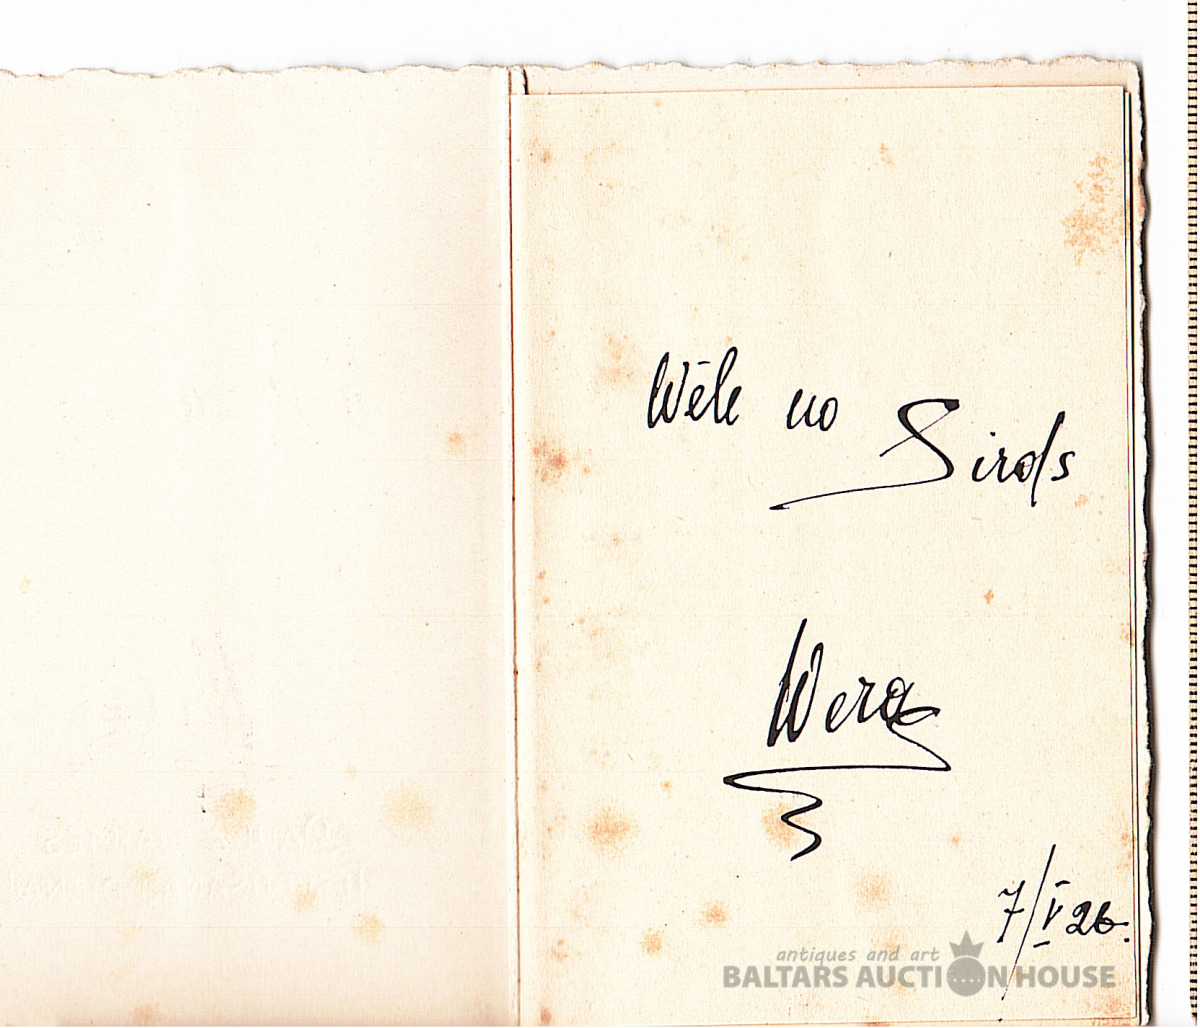 Wēle no Sirds
Wera
7/V 26.
antiques and art
BALTARS AUCTION HOUSE